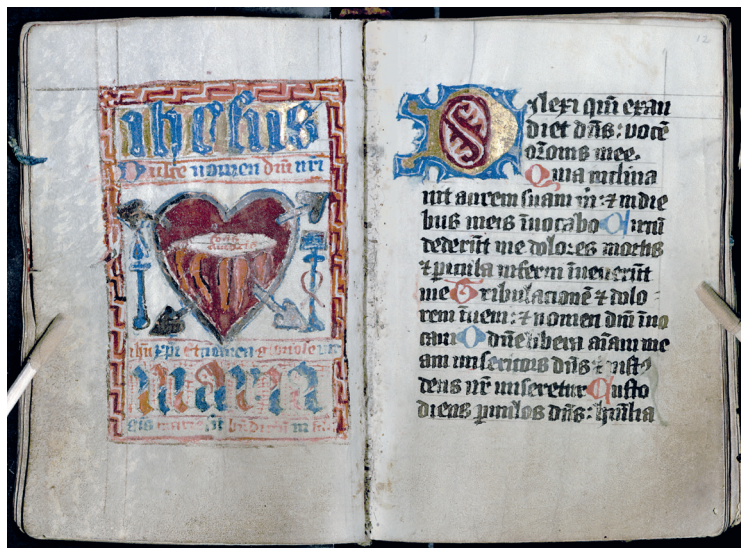 ihesus
Dulce nomen dm̄ nri
ihū xpi et nomen
maria
Dilexi qm̄ exau
diet dn̄s: vocē
or̄onis mee.
Quia inclina
uit aurem suam m: ⁊ in die
bus meis īuocabo Circū
dederūt me dolores mortis
⁊ pericula inferni īuenerūt
me Tribulacionē ⁊ dolo
rem īueni: ⁊ nomen dn̄i īuo
caui O dn̄e libera aīam me
am misericors dn̄s ⁊ iust
deus nr̄ miseretur Custo
diens paruulos dn̄s: hūilia
12